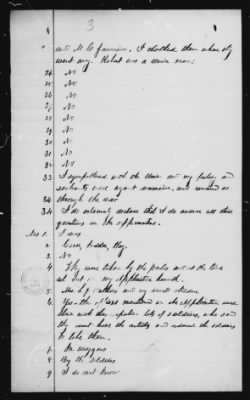 3
and M. C. I clothed them when they
went away. Robert was a slave man.
24 No
25 No
26 No
27 No
28 No
29 No
30 No
31 No
32 No
33 I sympathised with the Union and my feeling and
against secession, and remained so
through the war
34 I do solemnly declare that I do answer all these
questions in the affirmative.
1. I was
2. Corn, fodder, Hay.
3. No
4 They were taken by the parties and at the time
set out in my application
5. Mrs. and my small children
6 Yes the mentioned in the application were
there with the of soldiers, who said
they must have the articles and ordered the soldiers
to take them.
7. In waggons
8 By the soldiers
9 I do not know